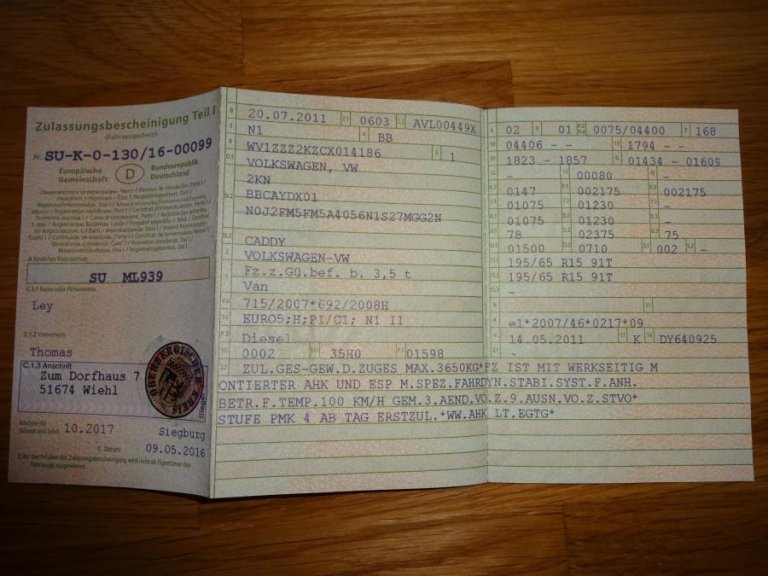 Zulassungsbescheinigung Teil I
(Fahrzeugschein)
Nr. SU-K-0-130/16-00099
Europäische Gemeinschaft
D
Bundesrepublik Deutschland
A Amtliches Kennzeichen
SU ML939
C.1.1 Name oder Firmenname
Ley
C.1.2 Vorname(n)
Thomas
C.1.3 Anschrift
Zum Dorfhaus 7
51674 Wiehl
OBERBERGISCHER KREIS
10.2017
Siegburg
Datum:
09.05.2016
B 20.07.2011 0603 AVL00449X
N1 BB
WV1ZZZ2KZCX014186 1
VOLKSWAGEN, VW
2KN
BBCAYDX01
N0J2FM5FM5A4056N1S27MGG2N
CADDY
VOLKSWAGEN-VW
Fz.z.Gü.bef. b. 3,5 t
Van
715/2007*692/2008H
EURO5;H;PI/CI; N1 II
Diesel
0002 35H0 01598
ZUL.GES-GEW.D.ZUGES MAX.3650KG*FZ IST MIT WERKSEITIG M
ONTIERTER AHK UND ESP M.SPEZ.FAHRDYN.STABI.SYST.F.ANH.
BETR.F.TEMP.100 KM/H GEM.3.AEND.VO.Z.9.AUSN.VO.Z.STVO*
STUFE PMK 4 AB TAG ERSTZUL.*WW.AHK LT.EGTG*
02 01 0075/04400 168
04406 - - 1794 - -
1823 - 1857 01434 - 01609
- 00080 -
0147 002175 002175
01075 01230 -
01075 01230 -
78 02375 75
01500 0710 002 -
195/65 R15 91T
195/65 R15 91T
-
-
e1*2007/46*0217*09
14.05.2011 K DY640925